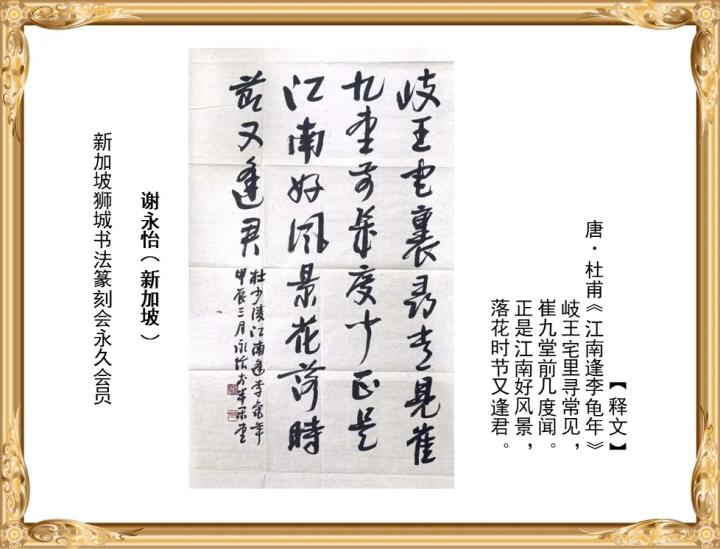 【释文】
唐·杜甫《江南逢李龟年》
岐王宅里寻常见，
崔九堂前几度闻。
正是江南好风景，
落花时节又逢君。
岐王宅裏尋常見崔
九堂前幾度聞正是
江南好風景花落時
節又逢君
杜少陵江南逢李龜年
甲辰三月永怡書
谢永怡（新加坡）
新加坡狮城书法篆刻会永久会员